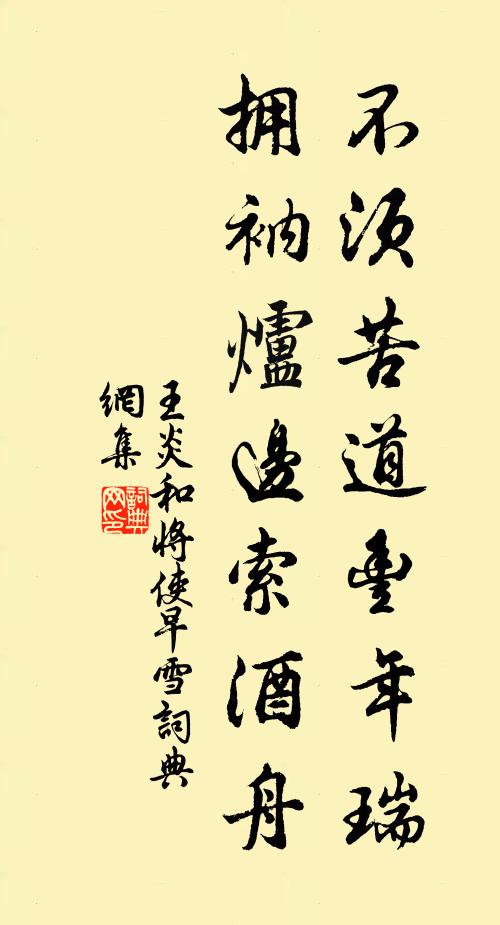 不須苦道豐年瑞
拥衲爐邊索酒舟
王炎和將使早雪詞典
網集
詞典
网印